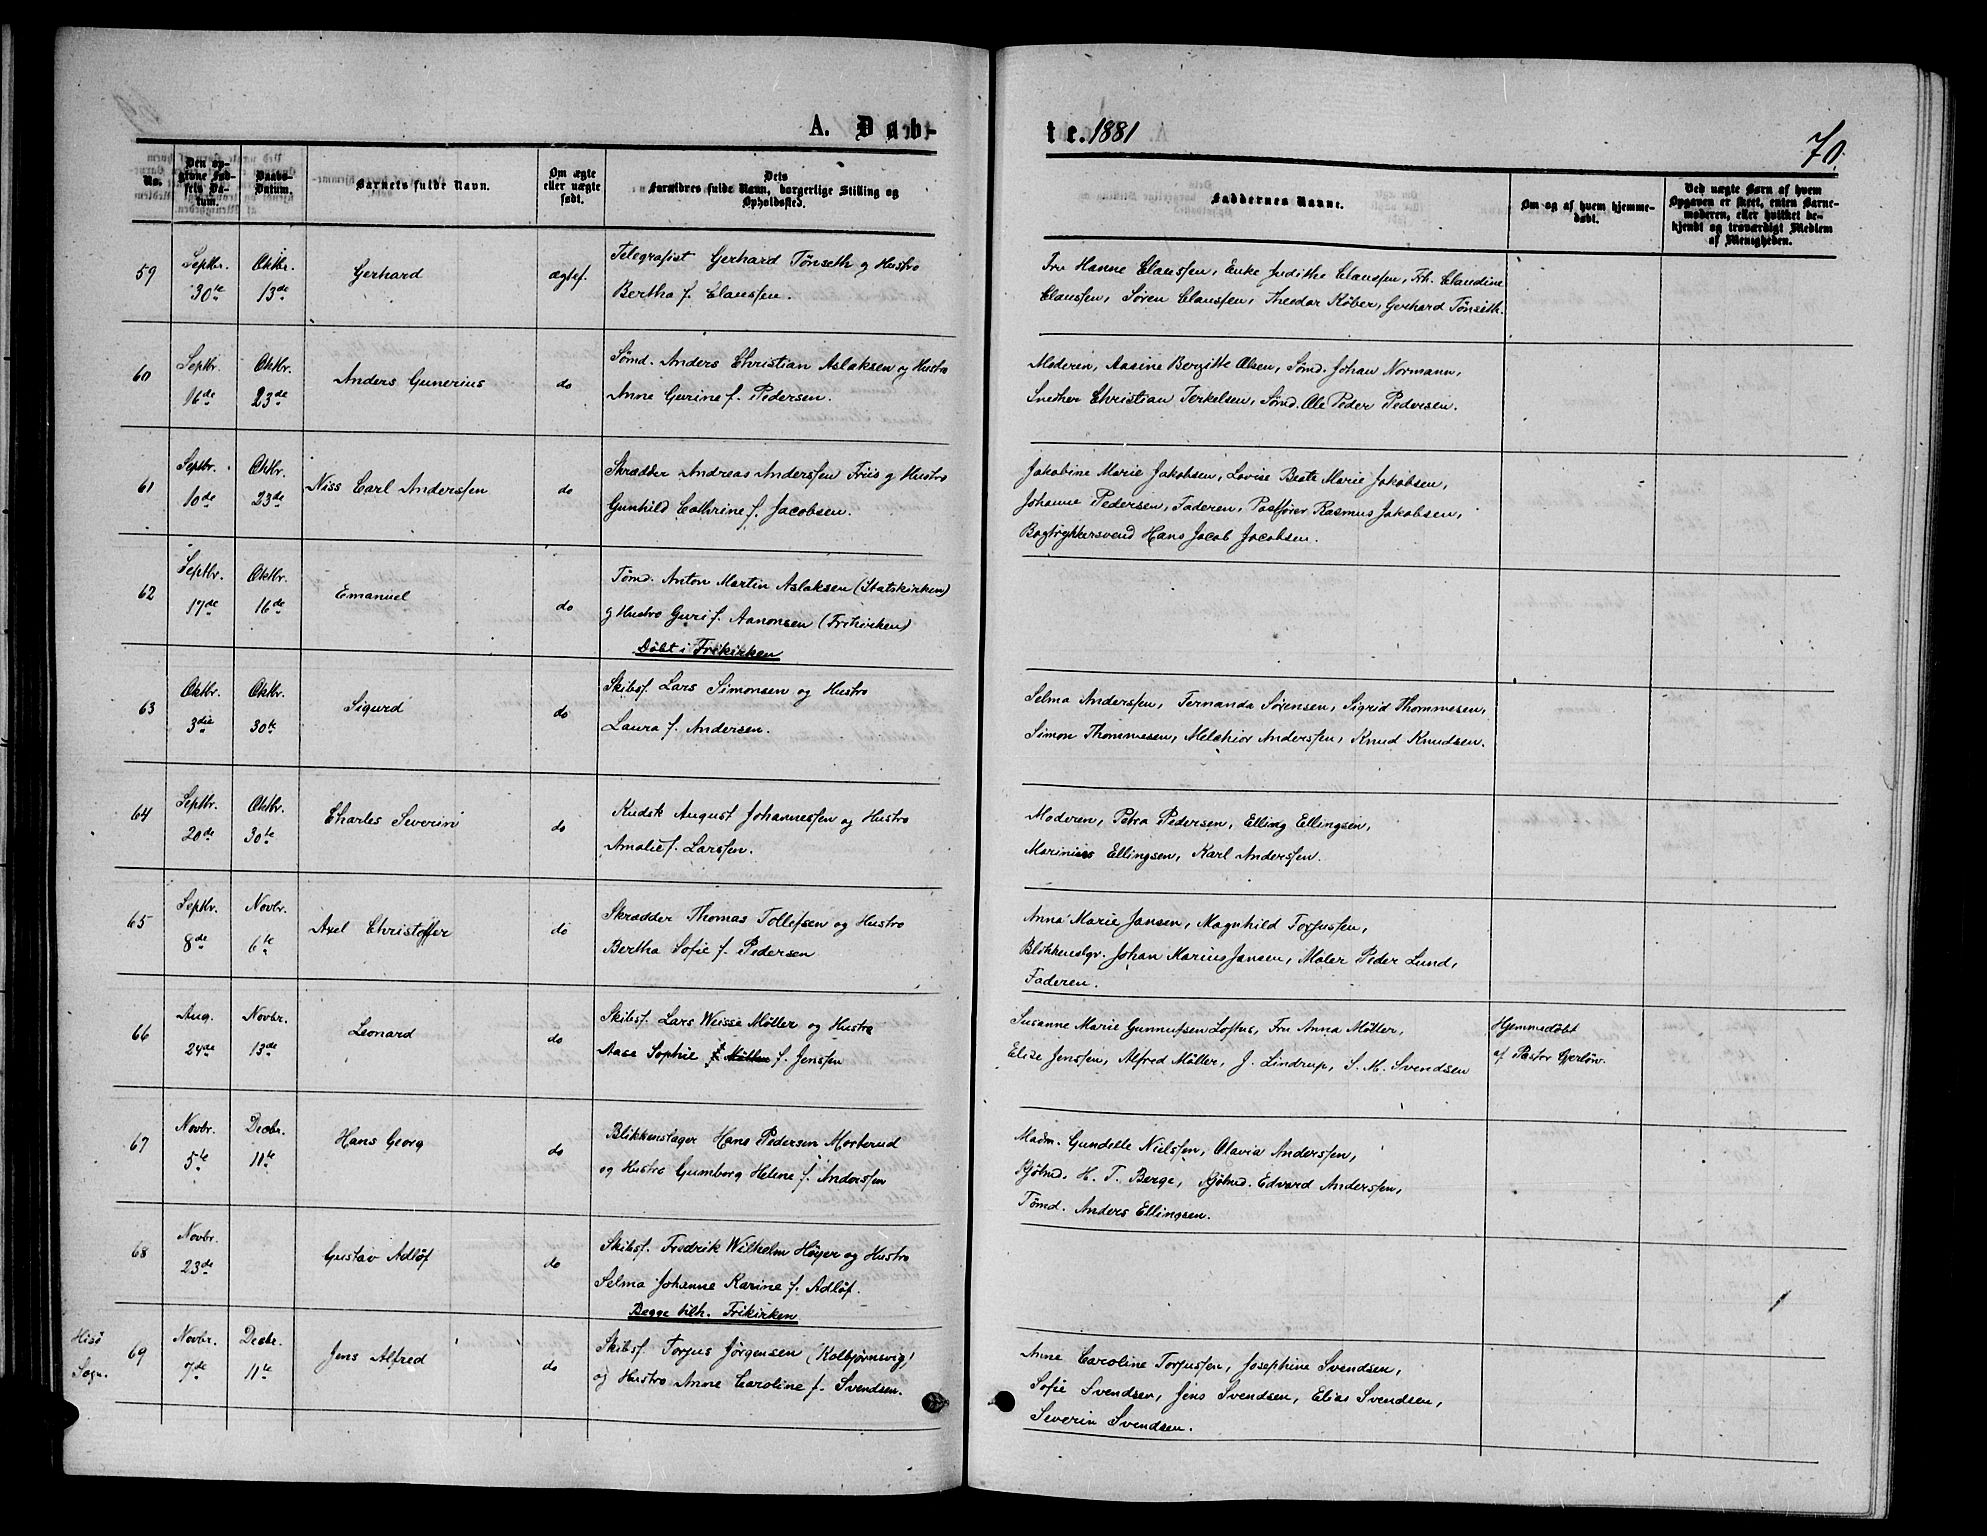 A. Døb-
te. 1881
70.
No.
Den op-
givne Fød-
sels Da-
tum.
Daabs-
Datum.
Barnets fulde Navn.
Om ægte
eller uægte
født.
Dets
Forældres fulde Navn, borgerlige Stilling og
Opholdssted.
Faddernes Navne.
Om og af hvem hjemme-
døbt.
Ved uægte Børn af hvem
Opgaven er skeet, enten Barne-
moderen, eller hvilket be-
kjendt og troværdigt Medlem
af Menigheden.
59
Septbr. 30te
Oktbr. 13de
Gerhard
ægtef.
Telegrafist Gerhard Tønseth og Hustro
Bertha f. Claussen.
Fru Hanne Claussen, Enke Judithe Claussen, Frk. Claudine
Claussen, Søren Claussen, Theodor Køber, Gerhard Tønseth.
60
Septbr. 16de
Oktbr. 23de
Anders Gunerius
do
Sømd. Anders Christian Aslaksen og Hustro
Anne Gurine f. Pedersen.
Moderen, Aasine Bergitte Olsen, Sømd. Johan Normann,
Snedker Christian Terkelsen, Sømd. Ole Peder Pedersen.
61
Septbr. 10de
Oktbr. 23de
Niss Carl Anderssen
do
Skrædder Andreas Anderssen Friis og Hustro
Gunhild Cathrine f. Jacobsen.
Jakobine Marie Jakobsen, Lovise Beate Marie Jakobsen,
Johanne Pedersen, Faderen, Postfører Rasmus Jakobsen,
Bogtrykkersvend Hans Jacob Jacobsen.
62
Septbr. 17de
Oktbr. 16de
Emanuel
do
Tømd. Anton Martin Aslaksen (Statskirken)
og Hustro Guri f. Aanonsen (Frikirken)
Døbt i Frikirken
63
Oktbr. 3die
Oktbr. 30te
Sigurd
do
Skibsf. Lars Simonsen og Hustro
Laura f. Andersen.
Selma Anderssen, Fernanda Sørensen, Sigrid Thommesen,
Simon Thommesen, Melchior Anderssen, Knud Knudsen.
64
Septbr. 20de
Oktbr. 30te
Charles Severin
do
Kudsk August Johannessen og Hustro
Amalie f. Larssen.
Moderen, Petra Pedersen, Elling Ellingsen,
Marinius Ellingsen, Karl Anderssen.
65
Septbr. 8de
Novbr. 6te
Axel Christoffer
do
Skrædder Thomas Tollefsen og Hustro
Bertha Sofie f. Pedersen
Anna Marie Jansen, Magnhild Torjussen,
Blikkenslgr. Johan Marius Jansen, Maler Peder Lund,
Faderen.
66
Aug. 24de
Novbr. 13de
Leonard
do
Skibsf. Lars Weisse Møller og Hustro
Aase Sophie f. Møller f. Jenssen
Susanne Marie Gunnufsen Loftus, Fru Anna Møller,
Elise Jenssen, Alfred Møller, J. Lindrup, S. M. Svendsen
Hjemmedøbt
af Pastor Gjerløw.
67
Novbr. 5te
Decbr. 11te
Hans Georg
do
Blikkenslager Hans Pedersen Morterud
og Hustro Gumborg Helene f. Anderssen
Madm. Gundelle Nielssen, Olavia Anderssen,
Kjøbmd. H. T. Berge, Kjøbmd. Edvard Anderssen,
Tømd. Anders Ellingsen.
68
Novbr. 23de
Gustav Adløf
do
Skibsf. Fredrik Wilhelm Høyer og Hustro
Selma Johanne Karine f. Adløf.
Begge tilh. Frikirken
Hisø
Sogn.
69
Novbr. 7de
Decbr. 11te
Jens Alfred
do
Skibsf. Torjus Jørgensen (Kolbjørnsvig)
og Hustro Anne Caroline f. Svendsen.
Anne Caroline Torjussen, Josephine Svendsen,
Sofie Svendsen, Jens Svendsen, Elias Svendsen,
Severin Svendsen.